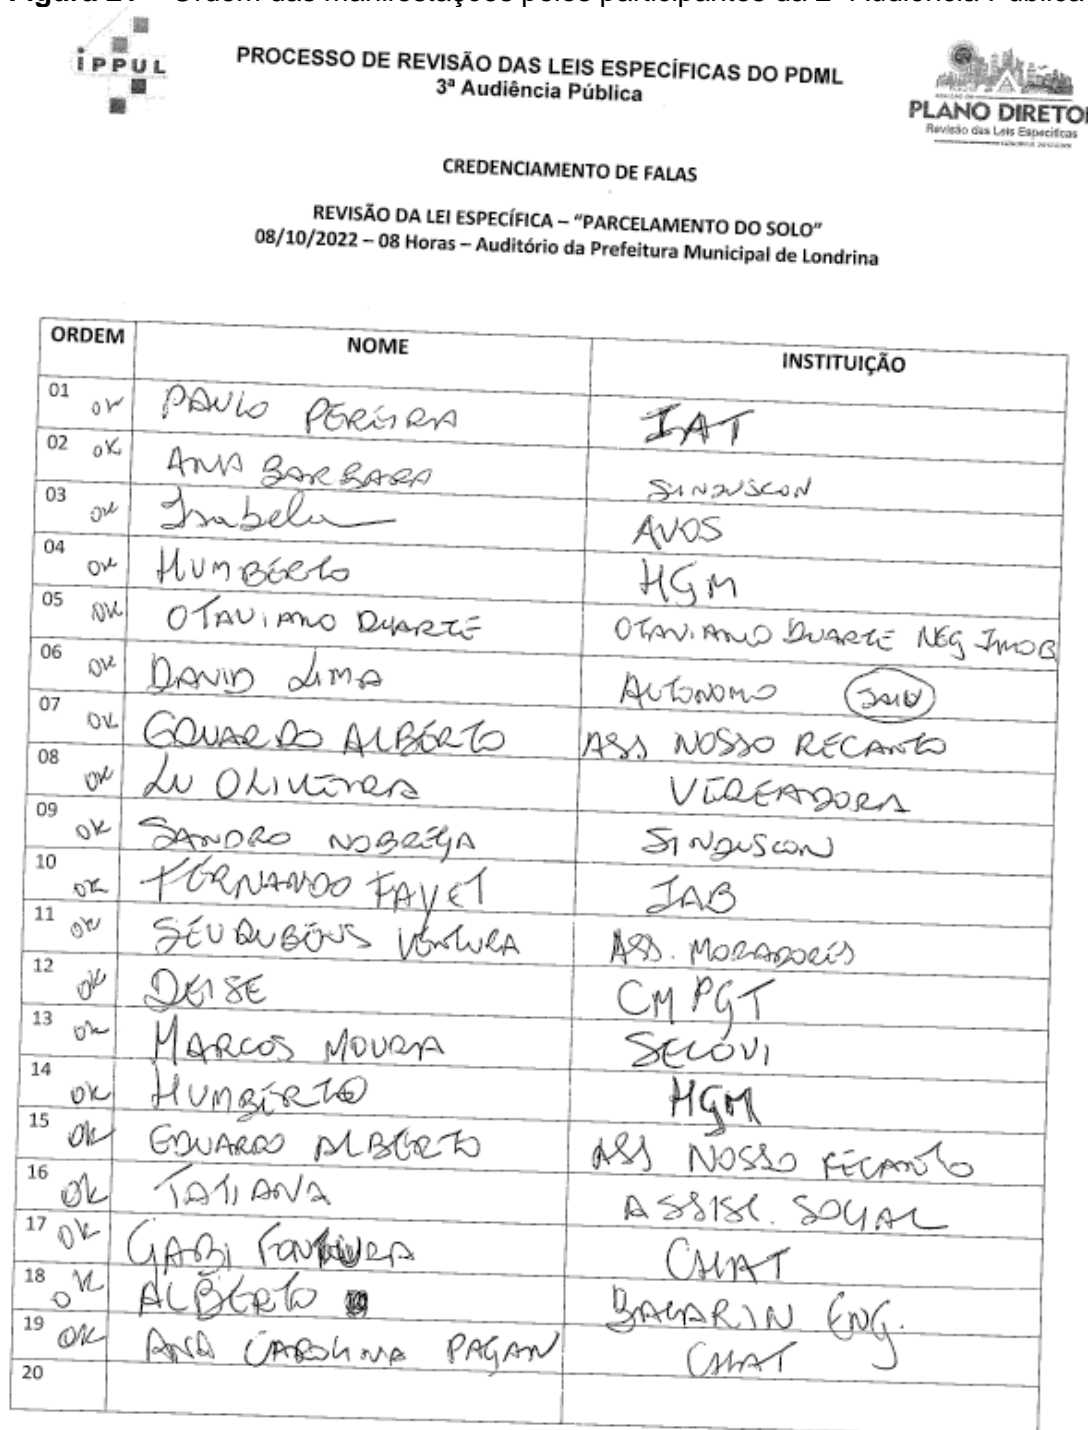 IPPUL
PROCESSO DE REVISÃO DAS LEIS ESPECÍFICAS DO PDML
3ª Audiência Pública
PLANO DIRETOR
Revisão das Leis Específicas
CREDENCIAMENTO DE FALAS
REVISÃO DA LEI ESPECÍFICA – "PARCELAMENTO DO SOLO"
08/10/2022 – 08 Horas – Auditório da Prefeitura Municipal de Londrina
ORDEM NOME INSTITUIÇÃO
01 OK PAULO PEREIRA IAT
02 OK ANA BARBARA SINDUSCON
03 OK Isabela AVOS
04 OK HUMBERTO HGM
05 OK OTAVIANO DUARTE OTAVIANO DUARTE NEG IMOB
06 OK DAVID LIMA AUTONOMO SAIU
07 OK EDUARDO ALBERTO ASS NOSSO RECANTO
08 OK LU OLIVEIRA VEREADORA
09 OK SANDRO NOBREGA SINDUSCON
10 OK FERNANDO FAYET IAB
11 OK SEU RUBENS VENTURA ASS. MORADORES
12 OK DEISE CMPGT
13 OK MARCOS MOURA SECOVI
14 OK HUMBERTO HGM
15 OK EDUARDO ALBERTO ASS NOSSO RECANTO
16 OK TATIANA ASSIST. SOCIAL
17 OK GABI FONTOURA CHAT
18 OK ALBERTO BACARIN ENG.
19 OK ANA CAROLINA PAGAN CHAT
20